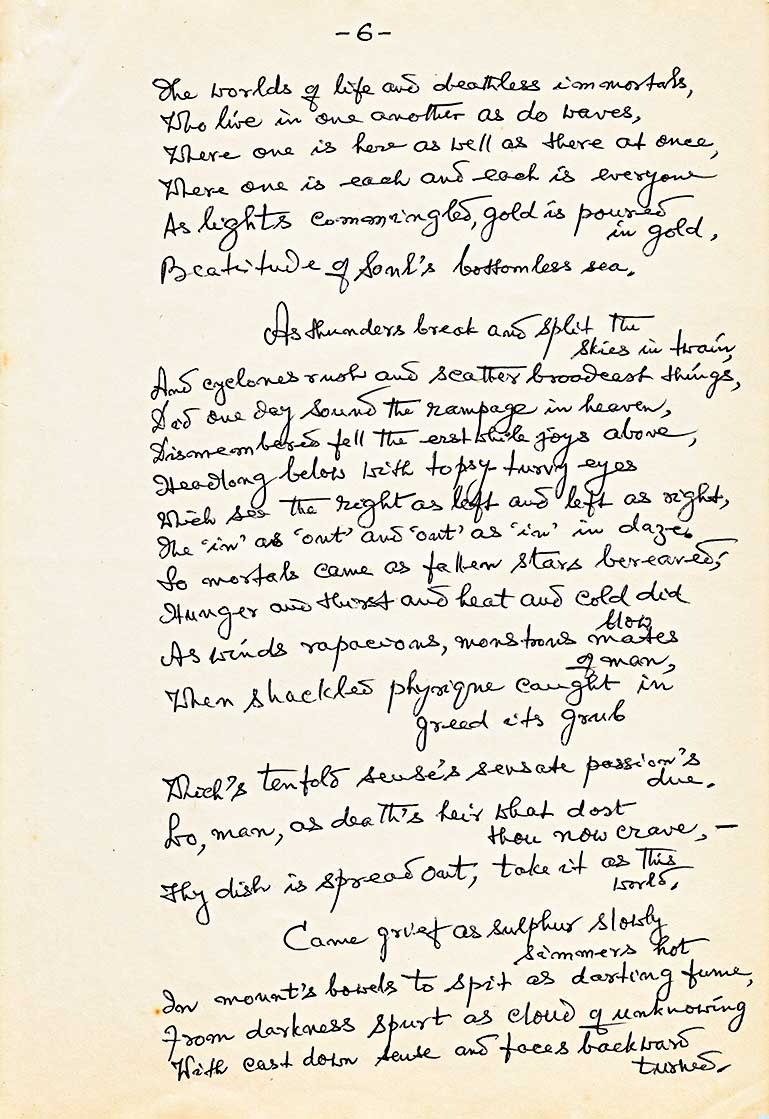 -6-
The worlds of life and deathless immortals,
Who live in one another as do waves,
Where one is here as well as there at once,
Where one is each and each is everyone
As lights commingled, gold is poured
in gold,
Beatitude of Soul's bottomless sea.
As thunders break and split the
skies in twain,
And cyclones rush and scatter broadcast things,
Did one day sound the rampage in heaven,
Dismembered fell the erstwhile joys above,
Headlong below with topsy turvy eyes
Which see the right as left and left as right,
The 'in' as 'out' and 'out' as 'in' in daze.
So mortals came as fallen stars bereaved;
Hunger and thirst and heat and cold did
blow
As winds rapacious, monstrous mates
of man,
When shackled physique caught in
greed its grub
Which's tenfold sense's sensate passion's
due.
Lo, man, as death's heir what dost
thou now crave, —
Thy dish is spread out, take it as this
world.
Came grief as sulphur slowly
simmers hot
In mount's bowels to spit as darting fume,
From darkness spurt as cloud of unknowing
With cast down sense and faces backward
turned.